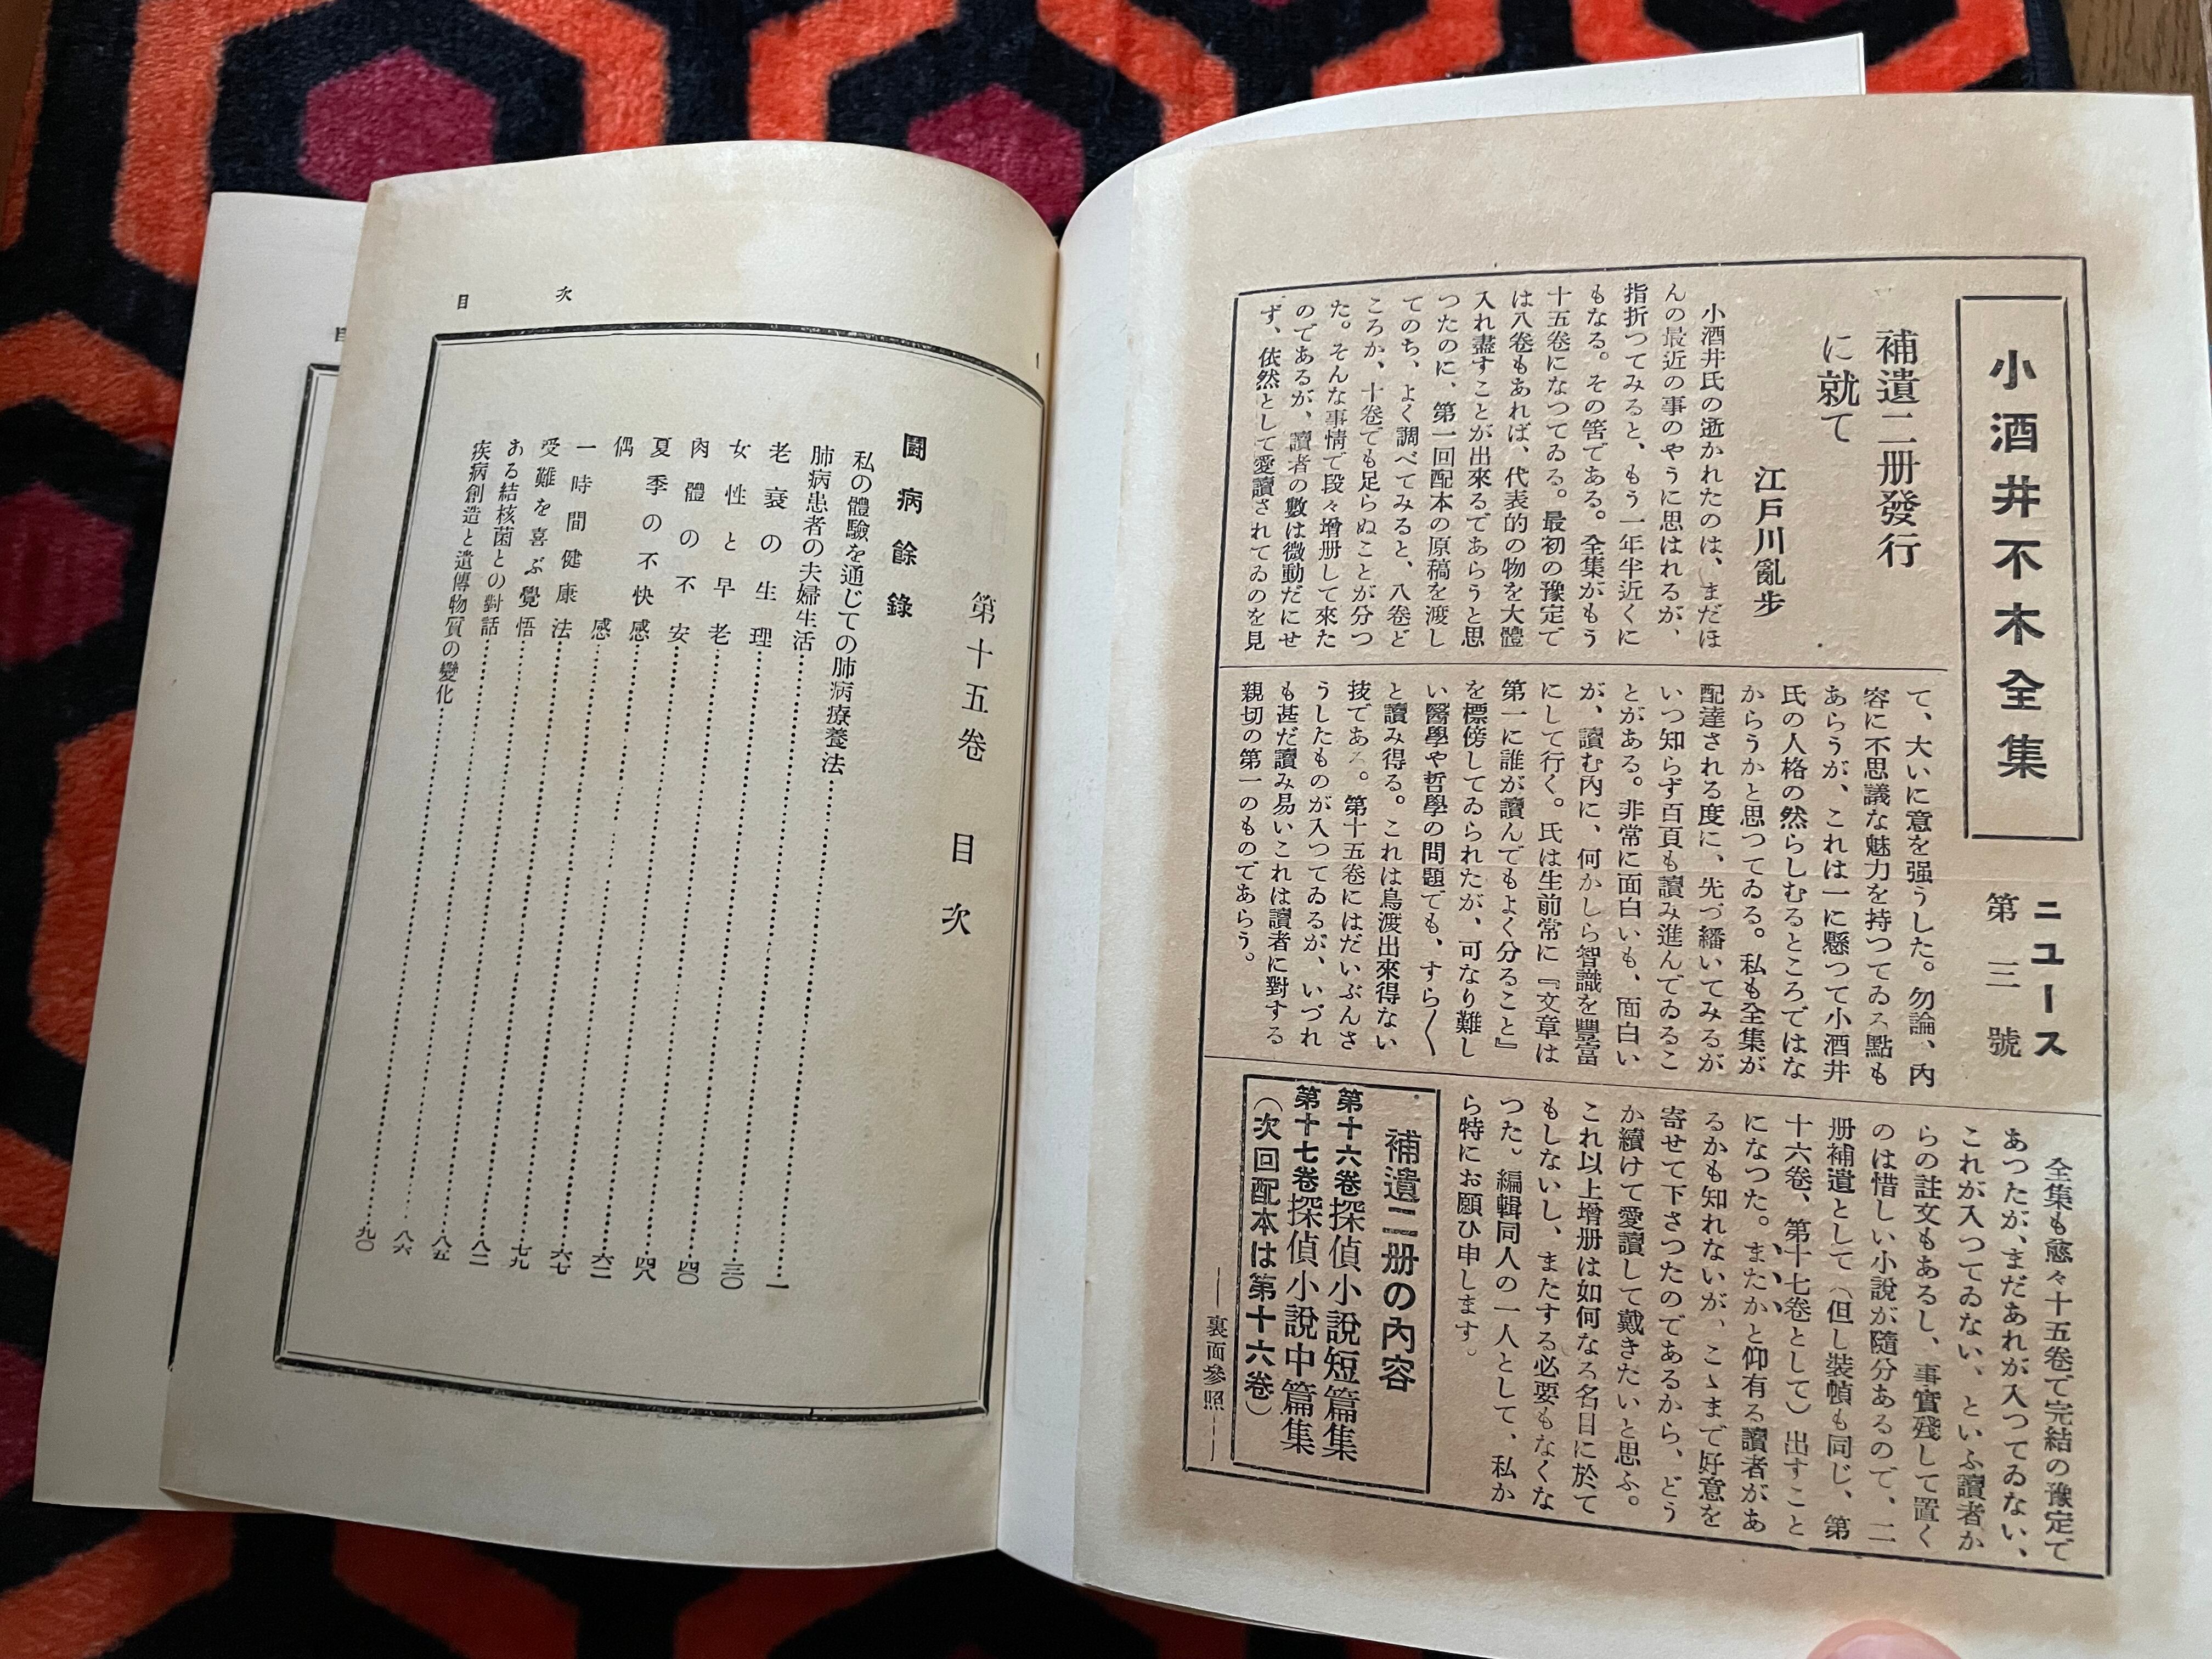 小酒井不木全集
ニュース
第三號
補遺二册發行
に就て
江戸川亂步
小酒井氏の逝かれたのは、まだほ
んの最近の事のやうに思はれるが、
指折つてみると、もう一年半近くに
もなる。その筈である。全集がもう
十五卷になつてゐる。最初の豫定で
は八卷もあれば、代表的の物を大體
入れ盡すことが出來るであらうと思
つたのに、第一回配本の原稿を渡し
てのち、よく調べてみると、八卷ど
ころか、十卷でも足らぬことが分つ
た。そんな事情で段々增册して來た
のであるが、讀者の數は微動だにせ
ず、依然として愛讀されてゐのを見
て、大いに意を强うした。勿論、内
容に不思議な魅力を持つてゐる點も
あらうが、これは一に懸つて小酒井
氏の人格の然らしむるところではな
からうかと思つてゐる。私も全集が
配達される度に、先づ繙いてみるが
いつ知らず百頁も讀み進んでゐるこ
とがある。非常に面白いも、面白い
が、讀む内に、何かしら智識を豐富
にして行く。氏は生前常に『文章は
第一に誰が讀んでもよく分ること』
を標傍してゐられたが、可なり難し
い醫學や哲學の問題でも、すら〱
と讀み得る。これは鳥渡出來得ない
技である。第十五卷にはだいぶんさ
うしたものが入つてゐるが、いづれ
も甚だ讀み易いこれは讀者に對する
親切の第一のものであらう。
全集も愈々十五卷で完結の豫定で
あつたが、まだあれが入つてゐない、
これが入つてゐない、といふ讀者か
らの註文もあるし、事實殘して置く
のは惜しい小說が隨分あるので、二
册補遺として(但し裝幀も同じ、第
十六卷、第十七卷として)出すこと
になつた。またかと仰有る讀者があ
るかも知れないが、こゝまで好意を
寄せて下さつたのであるから、どう
か續けて愛讀して戴きたいと思ふ。
これ以上增册は如何なる名目に於て
もしないし、またする必要もなくな
つた。編輯同人の一人として、私か
ら特にお願ひ申します。
補遺二册の内容
第十六卷探偵小說短篇集
第十七卷探偵小說中篇集
(次回配本は第十六卷)
——裏面參照——
目次
第十五卷 目次
鬪病餘錄
私の體驗を通じての肺病療養法……一
肺病患者の夫婦生活……三〇
老衰の生理……四〇
女性と早老……四八
肉體の不安……六二
夏季の不快感……六七
偶感……七九
一時間健康法……八二
受難を喜ぶ覺悟……八五
ある結核菌との對話……八六
疾病創造と遺傳物質の變化……九〇